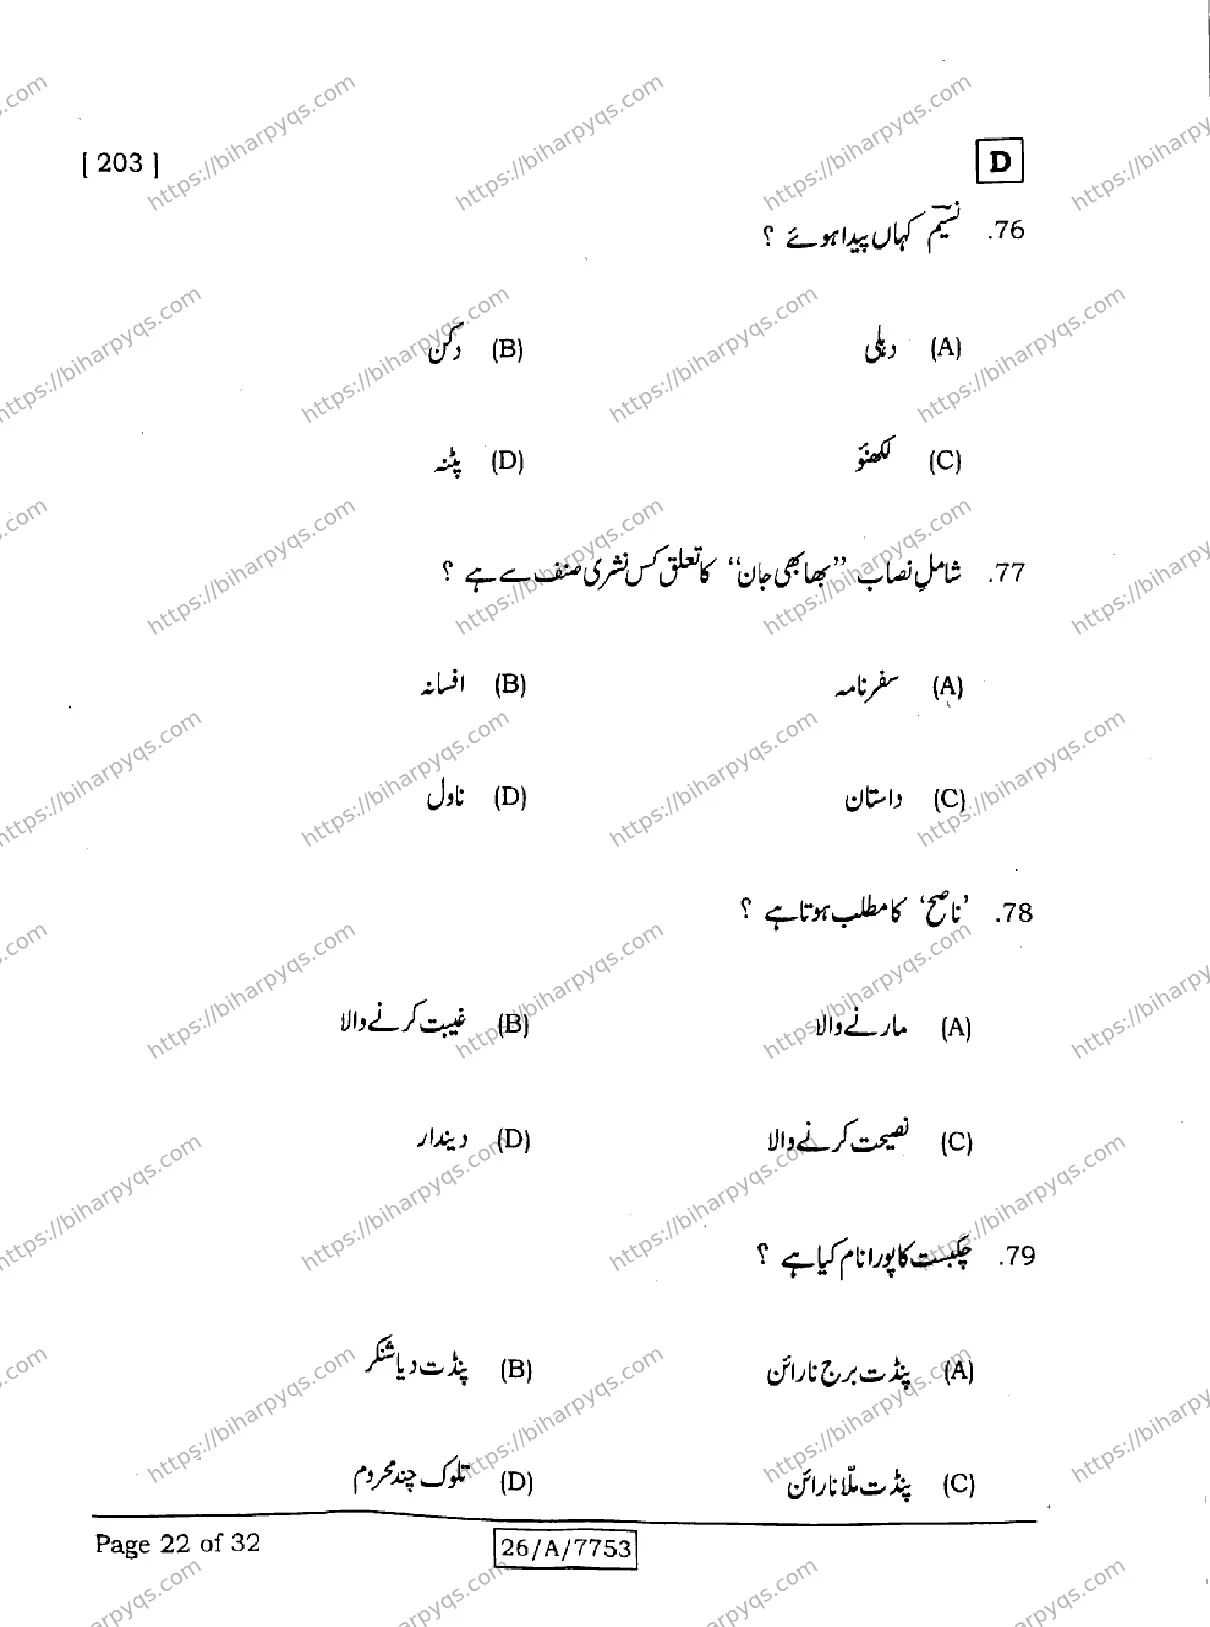 [ 203 ]
D
76. نسیم کہاں پیدا ہوئے ؟
(A) دہلی (B) دکن
(C) لکھنؤ (D) پٹنہ
77. شاملِ نصاب ”بھابھی جان“ کا تعلق کس نثری صنف سے ہے ؟
(A) سفرنامہ (B) افسانہ
(C) داستان (D) ناول
78. ’ناصح‘ کا مطلب ہوتا ہے ؟
(A) مارنے والا (B) غیبت کرنے والا
(C) نصیحت کرنے والا (D) دیندار
79. چکبست کا پورا نام کیا ہے ؟
(A) پنڈت برج نارائن (B) پنڈت دیا شنکر
(C) پنڈت ملّا نارائن (D) تلوک چند محروم
Page 22 of 32
26/A/7753
https://biharpyqs.com